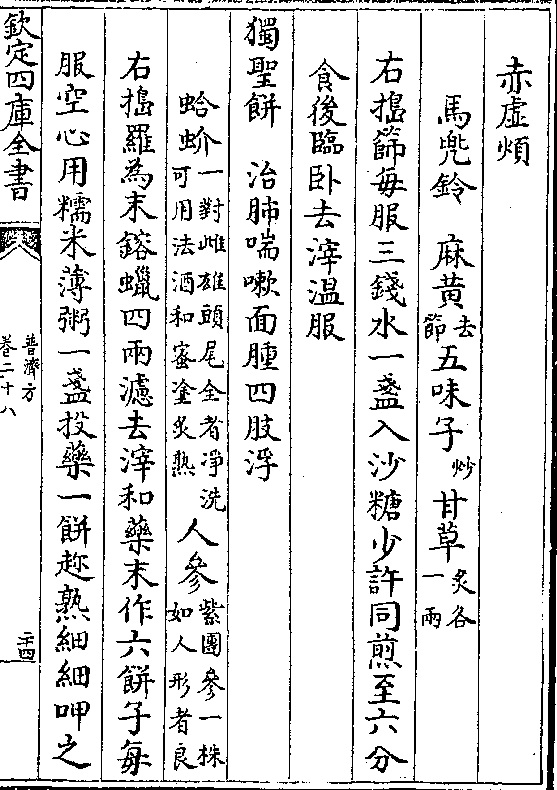 赤虛煩
馬兜鈴　麻黄去節五味子炒甘草炙各一兩
右搗篩毎服三錢水一盞入沙糖少許同煎至六分
食後臨卧去滓温服
獨聖餅　治肺喘嗽面腫四肢浮
蛤蚧一對雌雄頭尾全者净洗可用法酒和蜜塗炙熟人參紫團參一株如人形者良
右搗羅為末鎔蠟四兩濾去滓和藥末作六餅子毎
服空心用糯米薄粥一盞投藥一餅趂熟細細呷之
欽定四庫全書
普濟方
卷二十八
二十四